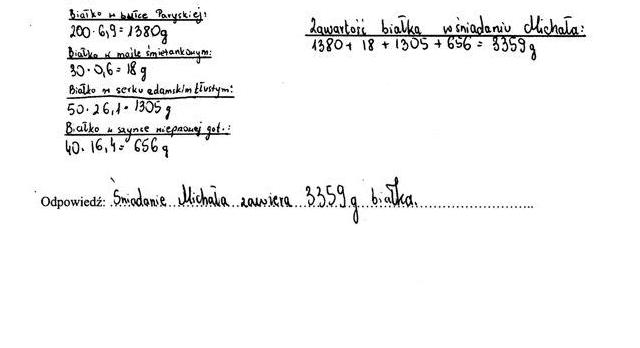 Białko w bułce Paryskiej:
200 · 6,9 = 1380g
Białko w maśle śmietankowym:
30 · 0,6 = 18 g
Białko w serku edamskim tłustym:
50 · 26,1 = 1305 g
Białko w szynce wieprzowej got.:
40 · 16,4 = 656 g
Zawartość białka w śniadaniu Michała:
1380 + 18 + 1305 + 656 = 3359 g
Odpowiedź: Śniadanie Michała zawiera 3359 g białka.